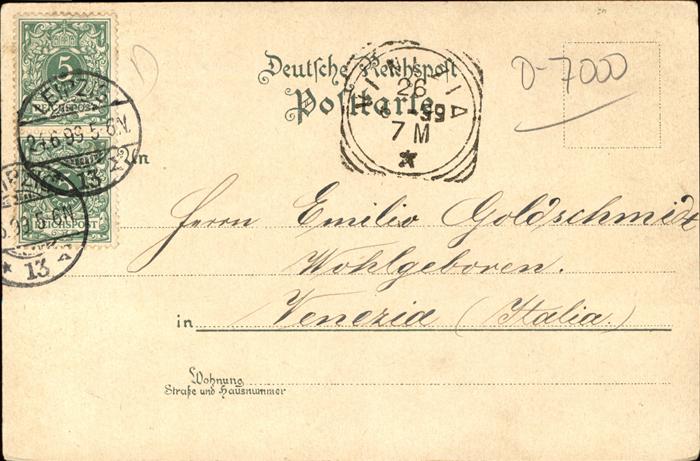 5
REICHSPOST
LEIPZIG
24.6.99.5-6.N.
13
5
REICHSPOST
99.5-6.N
13
Deutsche Reichspost
Postkarte
26
7 M
D-7000
An
Herrn Emilio Goldschmidt
Wohlgeboren.
in Venezia (Italia.)
Wohnung
Straße und Hausnummer